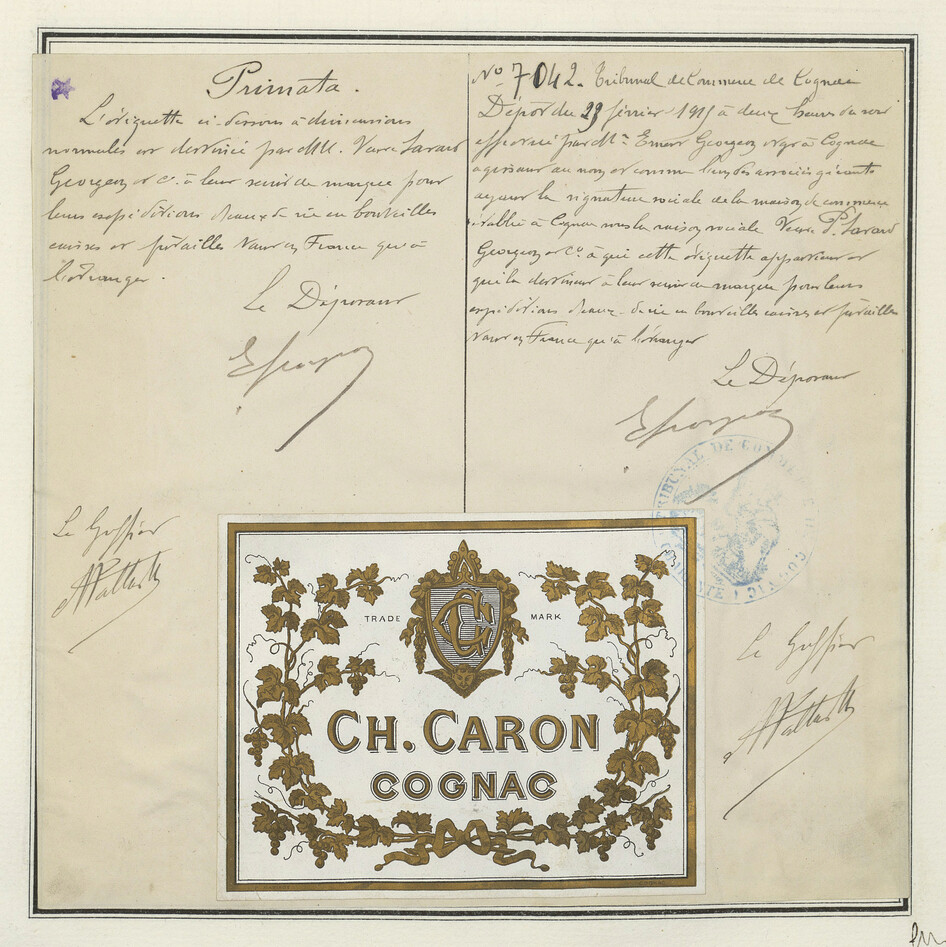 Primata.
L'étiquette ci-dessous à dimensions
normales est destinée par MM. Veuve Savard
Georgeon et Cie à leur servir de marque pour
leurs expéditions d'eaux de vie en bouteilles
caisses et futailles tant en France qu'à
l'étranger.
Le Déposant
No 7042. Tribunal de Commerce de Cognac
Dépôt du 23 février 1915 à deux heures du soir
effectué par Mr Ernest Georgeon négt à Cognac
agissant au nom et comme l'un des associés gérants
ayant la signature sociale de la maison de commerce
établie à Cognac sous la raison sociale Veuve P. Savard
Georgeon et Co. à qui cette étiquette appartient et
qui la destinent à leur servir de marque pour leurs
expéditions d'eaux-de-vie en bouteilles caisses et futailles
tant en France qu'à l'étranger
Le Déposant
TRIBUNAL DE COMMERCE
COGNAC
Le Greffier
Le Greffier
TRADE MARK
CC
CH. CARON
COGNAC